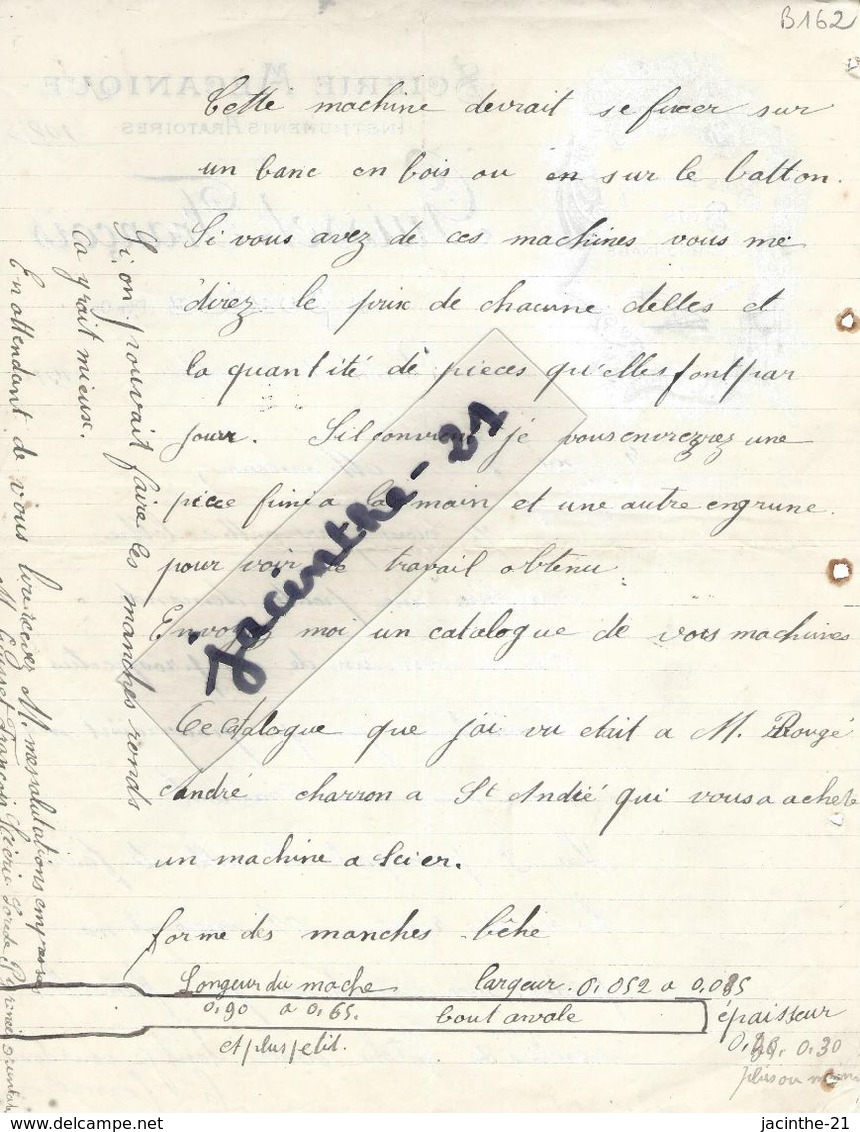 B162
Cette machine devrait se fixer sur
un banc en bois ou en sur le batton.
Si vous avez de ces machines vous me
direz le prix de chacune delles et
la quantité de pieces qu'elles font par
jour. Sil convient je vous enverrez une
piece fini a la main et une autre engrune.
pour voir le travail obtenu
Envoyez moi un catalogue de vois machines
Ce catalogue que j'ai vu etait a M. Rougé
andré charron a St André qui vous a acheté
un machine a scier.
forme des manches bêhe
Longeur du mache largeur. 0,052 a 0,085
0,90 a 0,65. bout ovale épaisseur
et plus petit. 0,30
plus ou moins
Si on pouvait faire les manches ronds
ca yrait mieux.
En attendant de vous lire recever M. mes salutations
M. François Scierie Soréda Pyrénées Orientales
SCIERIE MÉCANIQUE
INSTRUMENTS ARATOIRES
François
jacinthe-21
www.delcampe.net
jacinthe-21